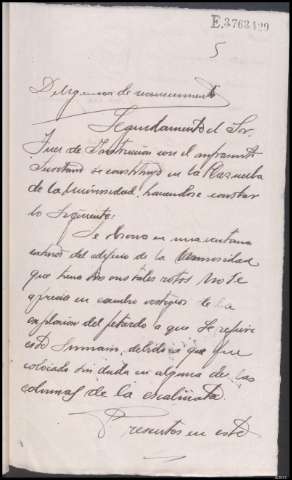 E.3763429
5
Diligencia de reconocimiento
Seguidamente el Sor.
Juez de Instrucción con el infrascrito
Secretario se constituyó en la Plazuela
de la Universidad, haciendose constar
lo siguiente:
Se observa en una ventana
del edificio de la Universidad
que tiene los cristales rotos no se
aprecia en cambio vestigios de la
explosion del petardo a que se refiere
este Sumario, debido a que fue
colocado sin duda en alguna de las
columnas de la escalinata.
Presentes en este